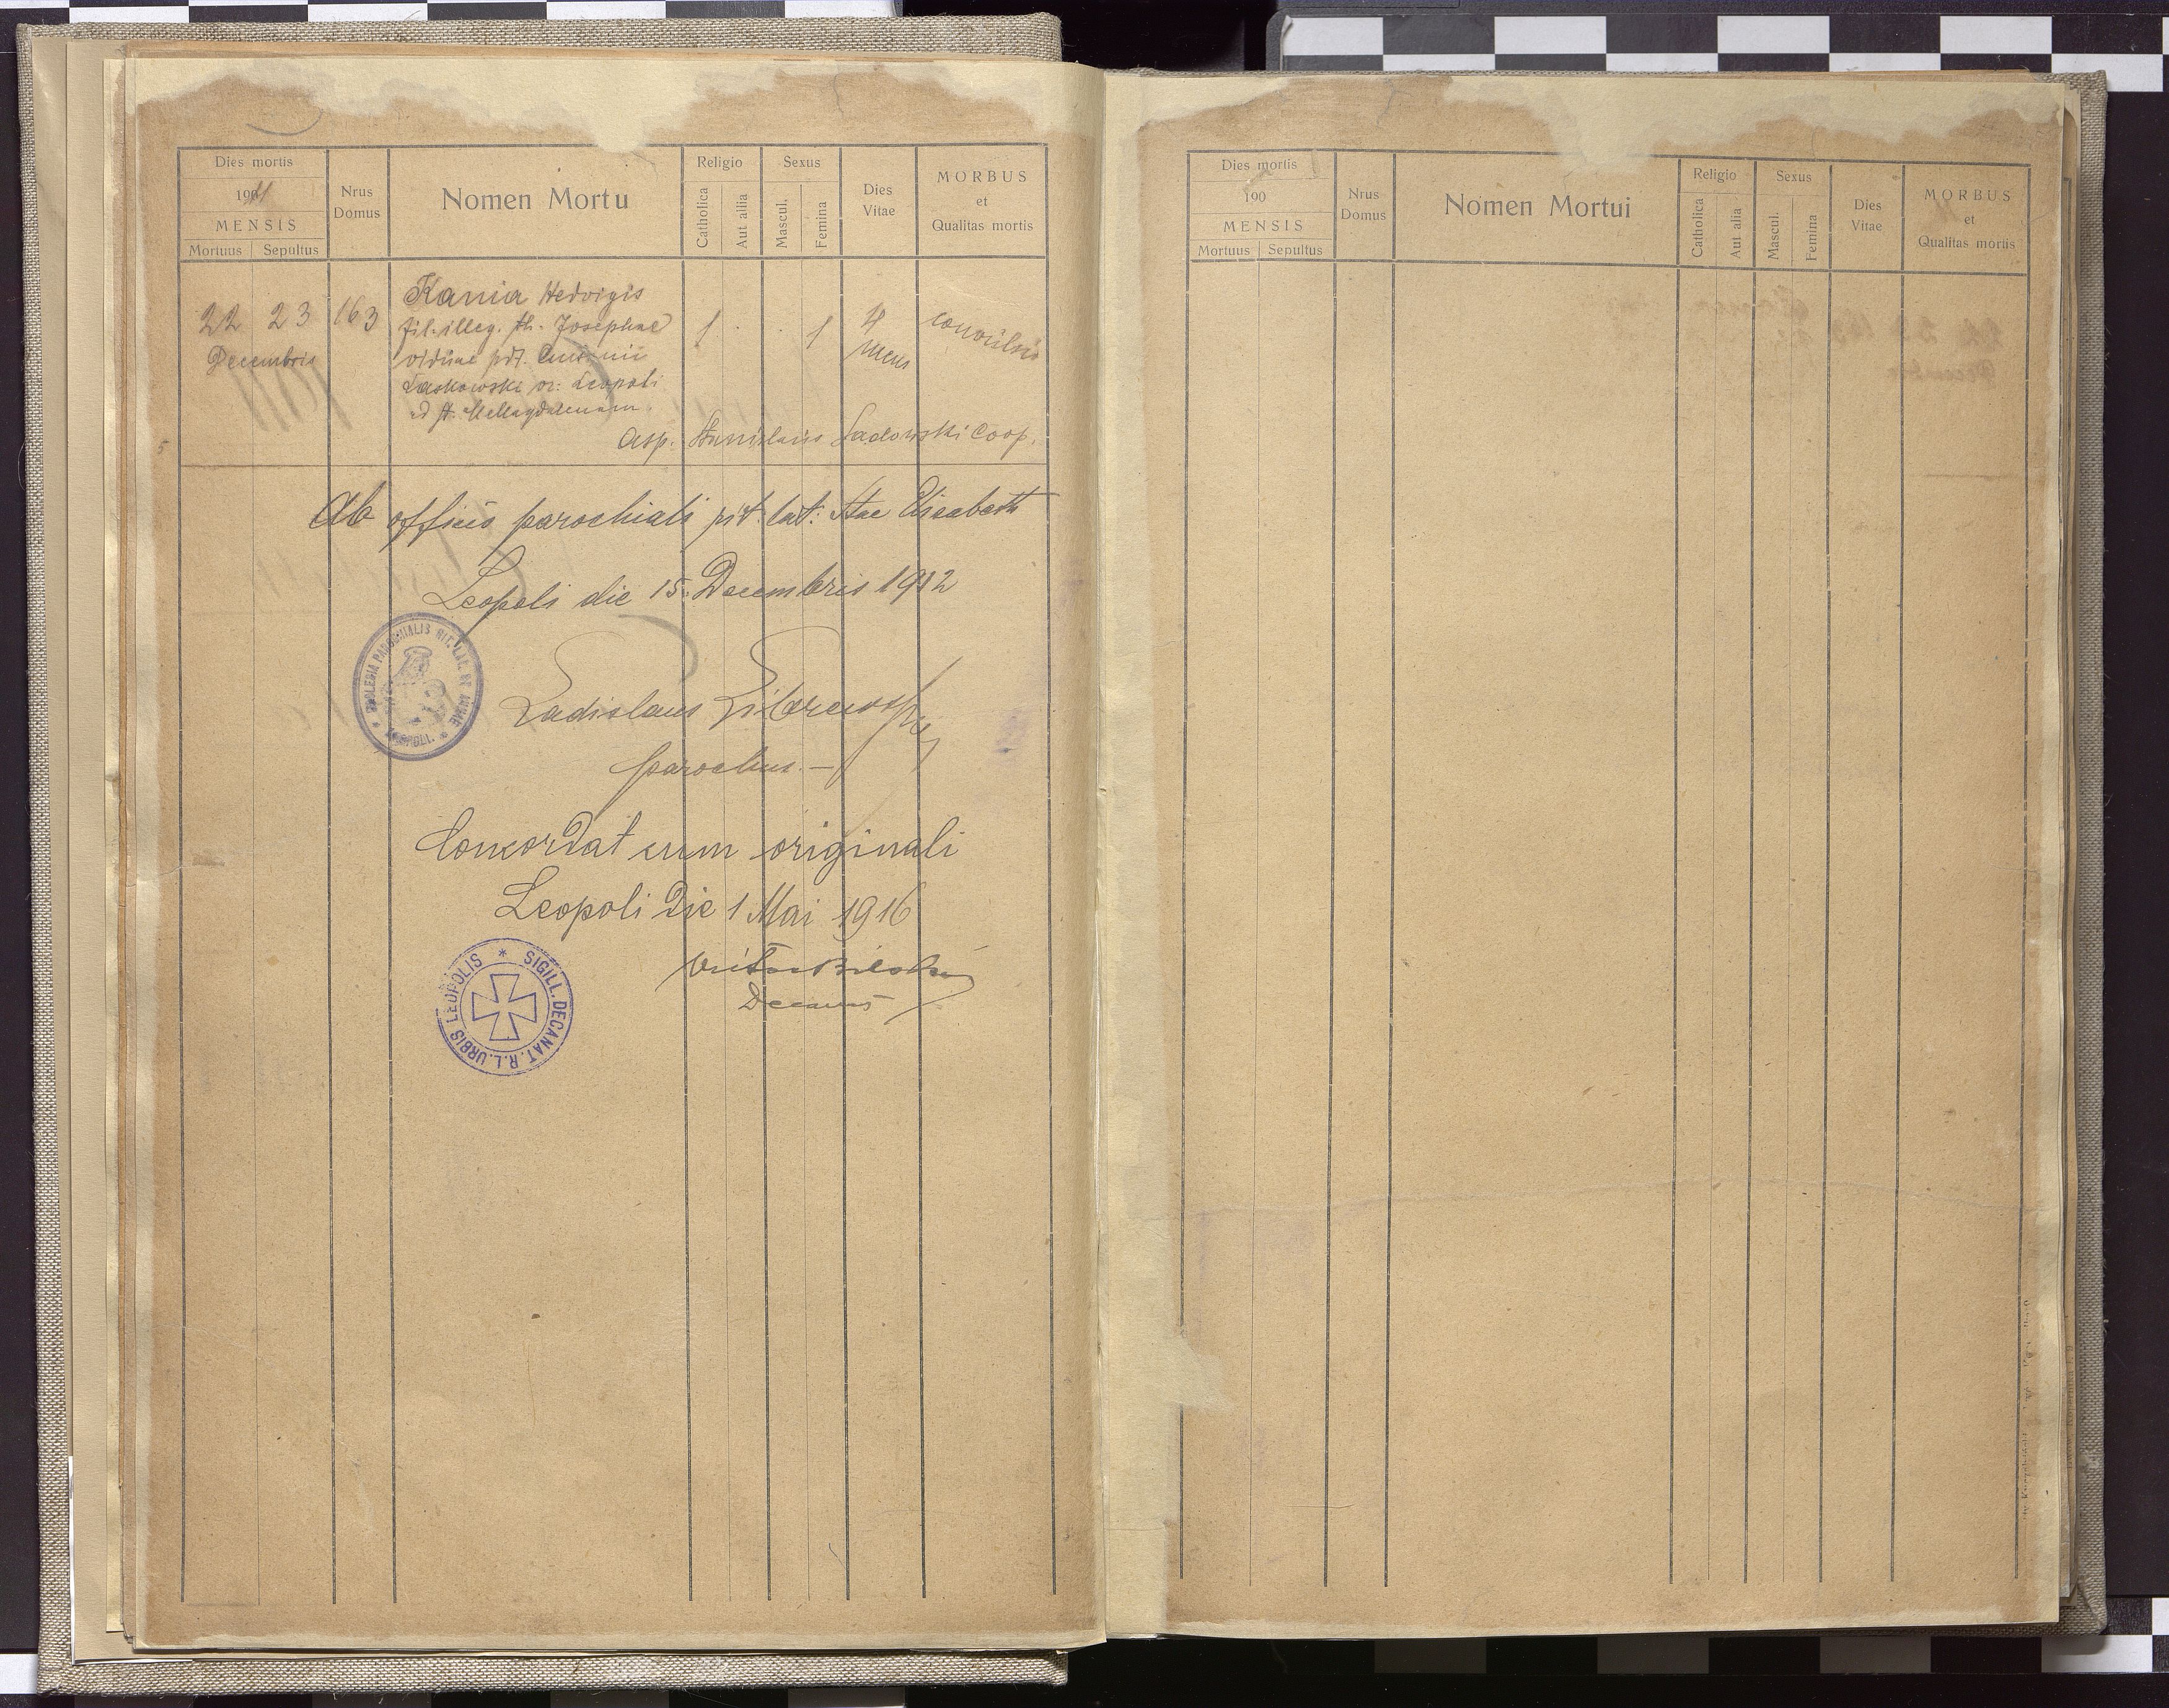 Dies mortis
1911
MENSIS
Mortuus Sepultus
Nrus Domus
Nomen Mortu
Religio
Catholica
Aut alia
Sexus
Mascul.
Femina
Dies Vitae
MORBUS
et
Qualitas mortis
22 23 163
Decembris
Kania Hedvigis
fil. illeg. th. Josephae
viduae pdf.
Laskowski or: Leopoli
ad St. M. Magdalenam
1 1
4
mens
convulsio
Asp. Stanislaus Sadowski Coop.
Ab officio parochiali rit. lat. Stae Elisabeth
Leopoli die 15. Decembris 1912
ECCLESIA PAROCHIALIS RIT. LAT. ST. ANNAE
LEOPOLI.
Ladislaus
parochus. —
Concordat cum originali
Leopoli die 1 Mai 1916
Decanus
SIGILL. DECANAT. R. L. URBIS LEOPOLIS
Dies mortis
190
MENSIS
Mortuus Sepultus
Nrus Domus
Nomen Mortui
Religio
Catholica
Aut alia
Sexus
Mascul.
Femina
Dies Vitae
MORBUS
et
Qualitas mortis